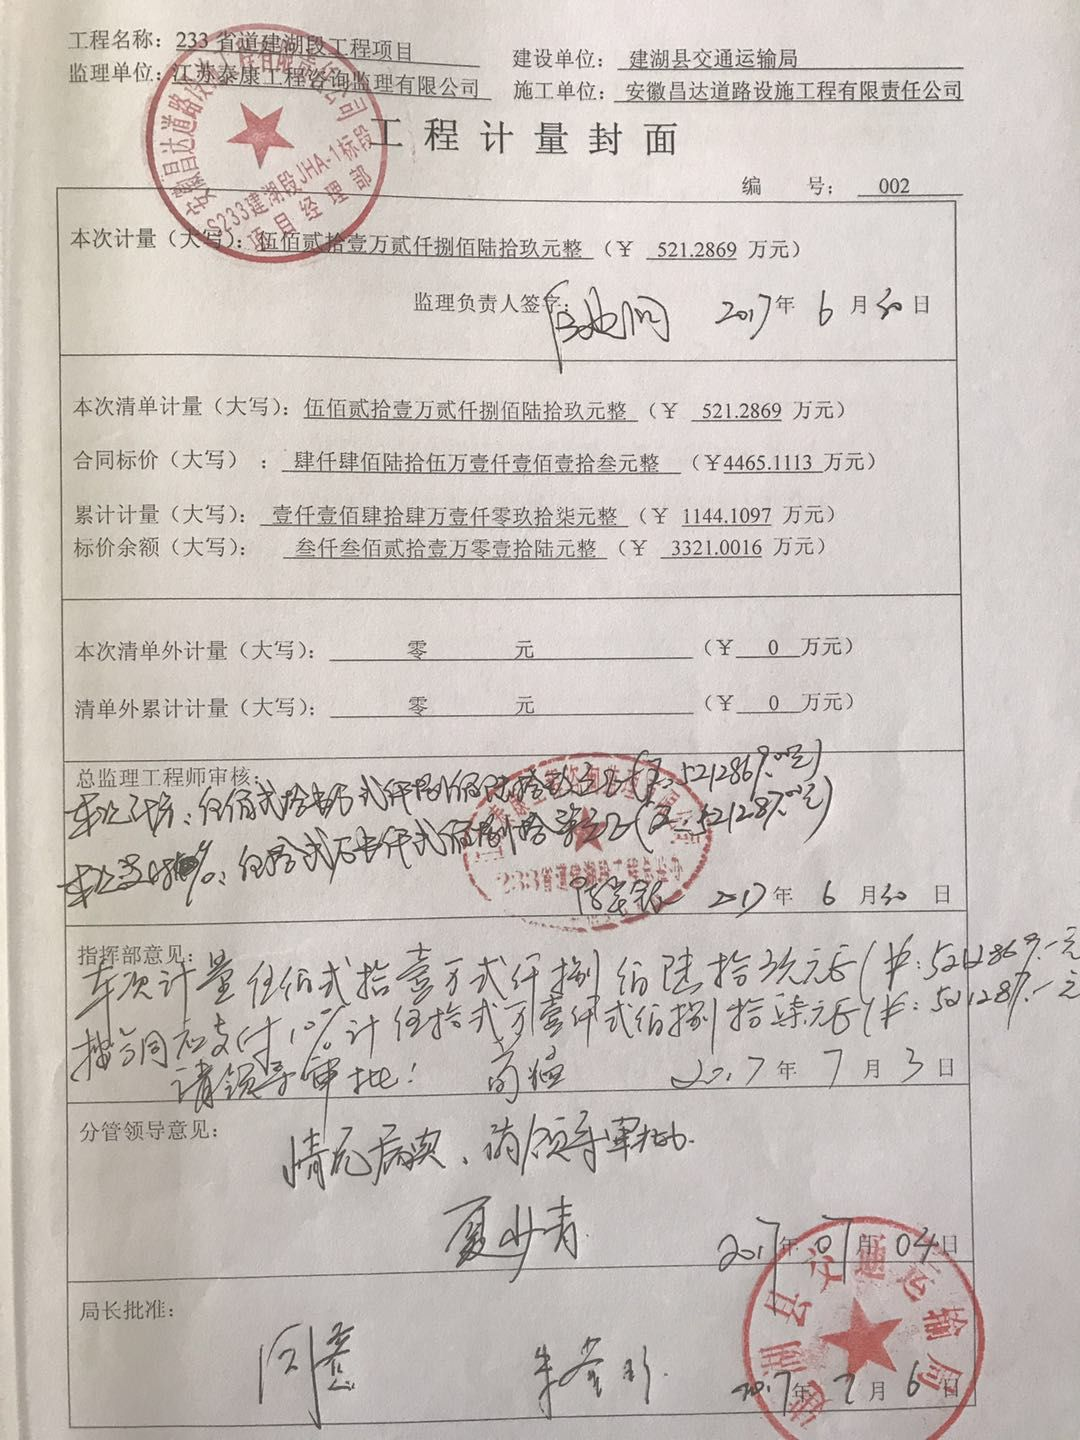 工程名称：233 省道建湖段工程项目 建设单位： 建湖县交通运输局
监理单位：江苏泰康工程咨询监理有限公司 施工单位：安徽昌达道路设施工程有限责任公司
安徽昌达道路设施工程有限责任公司
S233建湖段JHA-1标段
项目经理部
工程计量封面
编 号： 002
本次计量（大写）：伍佰贰拾壹万贰仟捌佰陆拾玖元整 （￥ 521.2869 万元）
监理负责人签字： 2017年 6 月30日
本次清单计量（大写）：伍佰贰拾壹万贰仟捌佰陆拾玖元整 （￥ 521.2869 万元）
合同标价（大写）： 肆仟肆佰陆拾伍万壹仟壹佰壹拾叁元整 （￥4465.1113 万元）
累计计量（大写）： 壹仟壹佰肆拾肆万壹仟零玖拾柒元整 （￥ 1144.1097 万元）
标价余额（大写）： 叁仟叁佰贰拾壹万零壹拾陆元整 （￥ 3321.0016 万元）
本次清单外计量（大写）： 零 元 （￥ 0 万元）
清单外累计计量（大写）： 零 元 （￥ 0 万元）
总监理工程师审核：
5212869.00元)
521287.00元)
233省道建湖段工程总监办
2017 年 6 月30 日
指挥部意见：
本次计量伍佰贰拾壹万贰仟捌佰陆拾玖元正(￥:5212869.-元
按合同应支付10%计伍拾贰万壹仟贰佰捌拾柒元正(￥:521287.-元
请领导审批! 2017 年 7 月 3 日
分管领导意见：
情况属实、请领导审批.
夏少青
2017年07月04日
局长批准：
同意
2017年7月6日
建湖县交通运输局